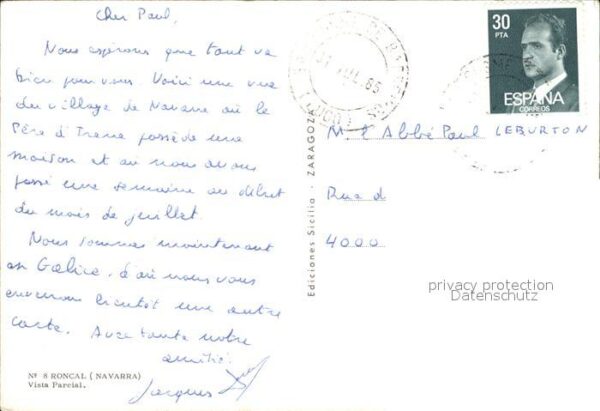 Cher Paul,
Nous espérons que tout va
bien pour vous. Voici une vue
du village de Navarre où le
Père d'Irene possède une
maison et où nous avons
passé une semaine au début
du mois de juillet.
Nous sommes maintenant
en Galice, d'où nous vous
enverrons bientôt une autre
carte. Avec toute notre
amitié.
Jacques
Nº 8 RONCAL (NAVARRA)
Vista Parcial.
Ediciones Sicilia - ZARAGOZA
30
PTA
ESPAÑA
CORREOS
JUL. 85
M. l'Abbé Paul LEBURTON
Rue d
4000
privacy protection
Datenschutz